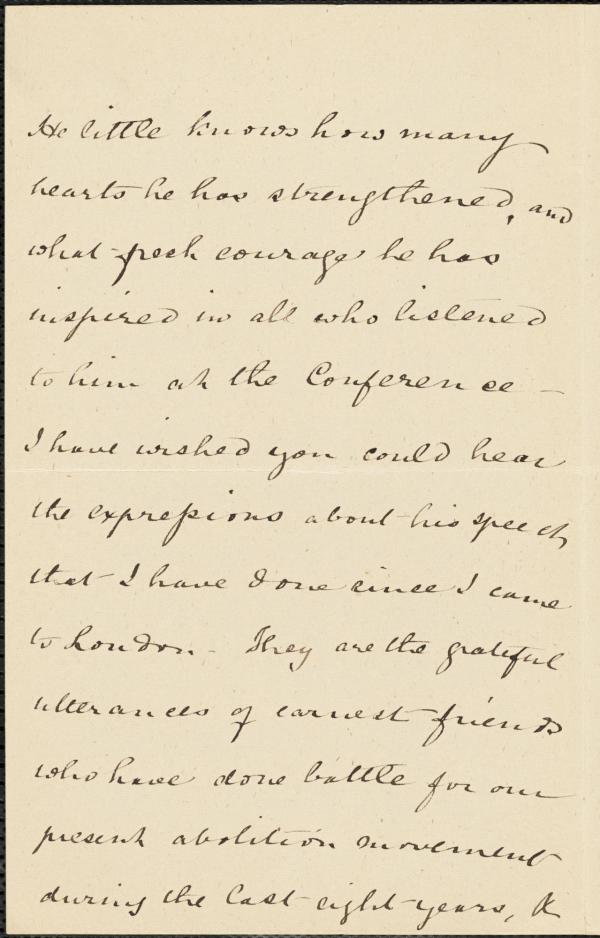 He little knows how many
hearts he has strengthened, and
what fresh courage he has
inspired in all who listened
to him at the Conference –
I have wished you could hear
the expressions about his speech
that I have done since I came
to London – They are the grateful
utterances of earnest friends
who have done battle for our
present abolition movement
during the last eight years, &